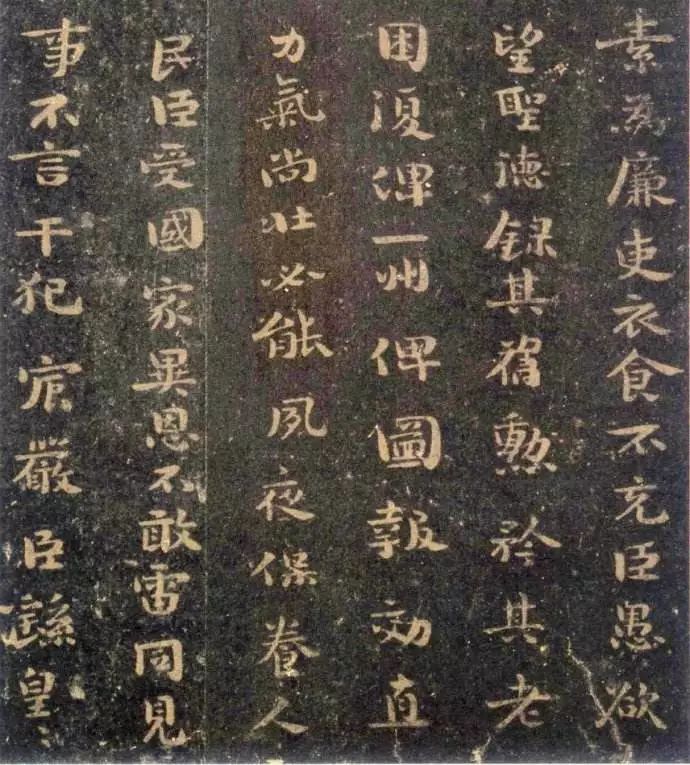 素爲廉吏衣食不充臣愚欲
望聖德錄其舊勳矜其老
困復俾一州俾圖報効直
力氣尚壯必能夙夜保養人
民臣受國家異恩不敢雷同見
事不言干犯宸嚴臣繇皇〻